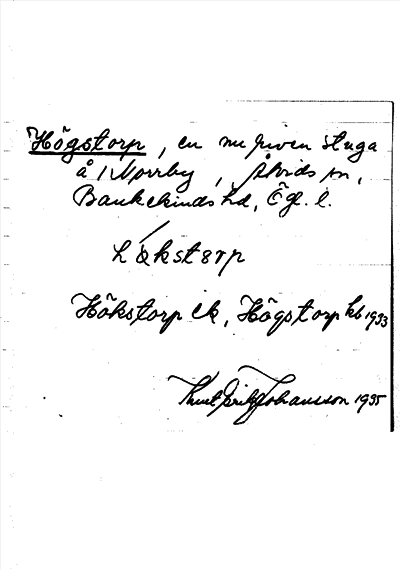 Högstorp, en nu riven stuga
å Norrby, Åtvids sn,
Bankekinds hd, Ögl. l.
hökstorp
Hökstorp ek, Högstorp kb 1933
Knut Erik Johansson 1935